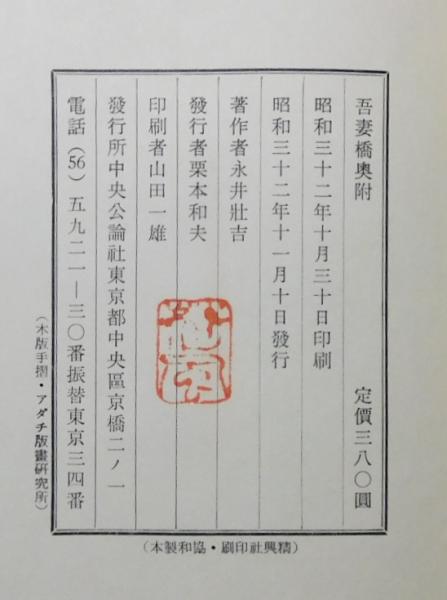 吾妻橋奥附　定價三八〇圓
昭和三十二年十月三十日印刷
昭和三十二年十一月十日發行
著作者永井壯吉
發行者栗本和夫
印刷者山田一雄
發行所中央公論社東京都中央區京橋二ノ一
電話（56）五九二一―三〇番振替東京三四番
（木版手摺・アダチ版畫硏究所）
（精興社印刷・協和製本）